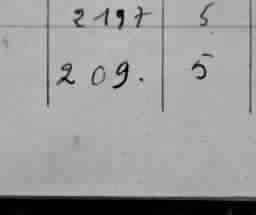 2197 5
209. 5